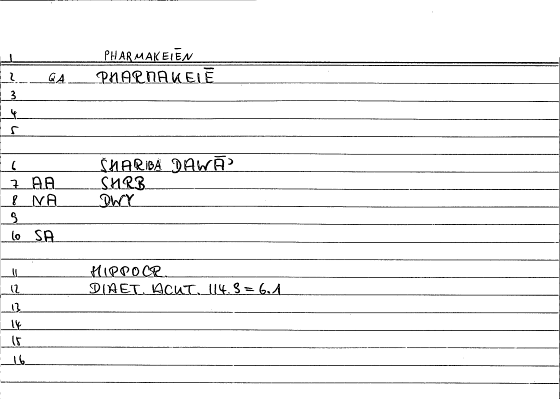 1 PHARMAKEIĒN
2 GA PHARMAKEIĒ
3
4
5
6 SHARIBA DAWĀʾ
7 AA SHRB
8 NA DWY
9
10 SA
11 HIPPOCR.
12 DIAET. ACUT. 114.9 = 6.1
13
14
15
16